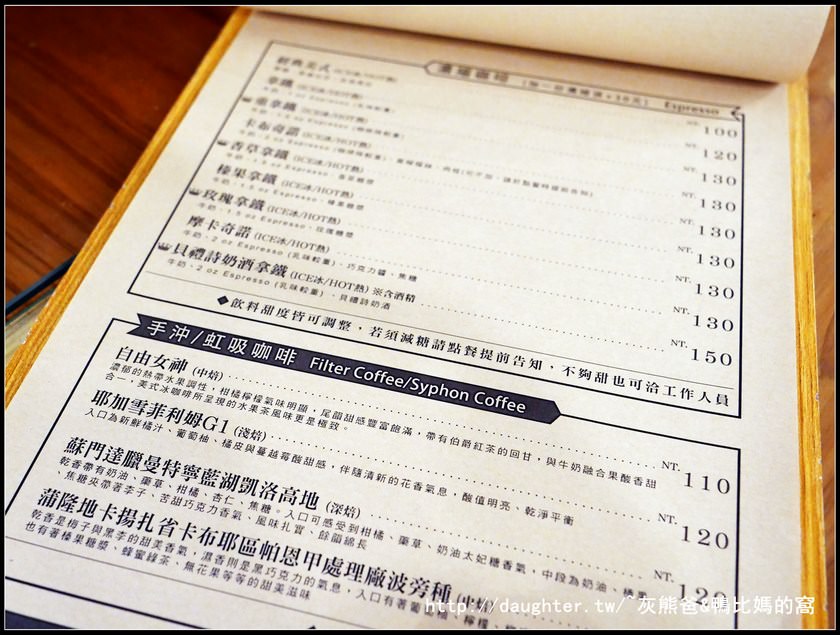 經典美式 (ICE冰/HOT熱) NT. 100
拿鐵 (ICE冰/HOT熱) 120
重拿鐵 (ICE冰/HOT熱) 130
卡布奇諾 (ICE冰/HOT熱) 130
香草拿鐵 (ICE冰/HOT熱) 130
牛奶、1.5 oz Espresso、香草糖漿
榛果拿鐵 (ICE冰/HOT熱) 130
牛奶、1.5 oz Espresso、榛果糖漿
玫瑰拿鐵 (ICE冰/HOT熱) 130
牛奶、1.5 oz Espresso、玫瑰糖漿
摩卡奇諾 (ICE冰/HOT熱) 130
牛奶、2 oz Espresso (乳味較重)、巧克力醬、焦糖
貝禮詩奶酒拿鐵 (ICE冰/HOT熱) ※含酒精 150
牛奶、2 oz Espresso (乳味較重)、貝禮詩奶酒
◆飲料甜度皆可調整，若須減糖請點餐提前告知，不夠甜也可洽工作人員
手沖/虹吸咖啡 Filter Coffee/Syphon Coffee
自由女神 (中焙) NT. 110
濃郁的熱帶水果調性，柑橘檸檬氣味明顯，尾韻甜感豐富飽滿，帶有伯爵紅茶的回甘，與牛奶融合果酸香甜
合一，美式冰咖啡所呈現的水果茶風味更是極致。
耶加雪菲利姆G1 (淺焙) NT. 120
入口為新鮮橘汁、葡萄柚、橘皮與蔓越莓酸甜感，伴隨清新的花香氣息，酸值明亮、乾淨平衡
蘇門達臘曼特寧藍湖凱洛高地 (深焙) NT.
乾香帶有奶油、藥草、柑橘、杏仁、焦糖。入口可感受到柑橘、藥草、奶油太妃糖香氣，中段為奶油、
、焦糖夾帶著李子、苦甜巧克力香氣、風味扎實、餘韻綿長
蒲隆地卡揚扎省卡布耶區帕恩甲處理廠波旁種
乾香是梅子與黑李的甜美香氣，濕香則是黑巧克力的氣息，入口有著葡萄柚、檸檬、
也有著榛果糖漿、蜂蜜綠茶、無花果等等的甜美滋味
http://daughter.tw/~灰熊爸&鴨比媽的窩